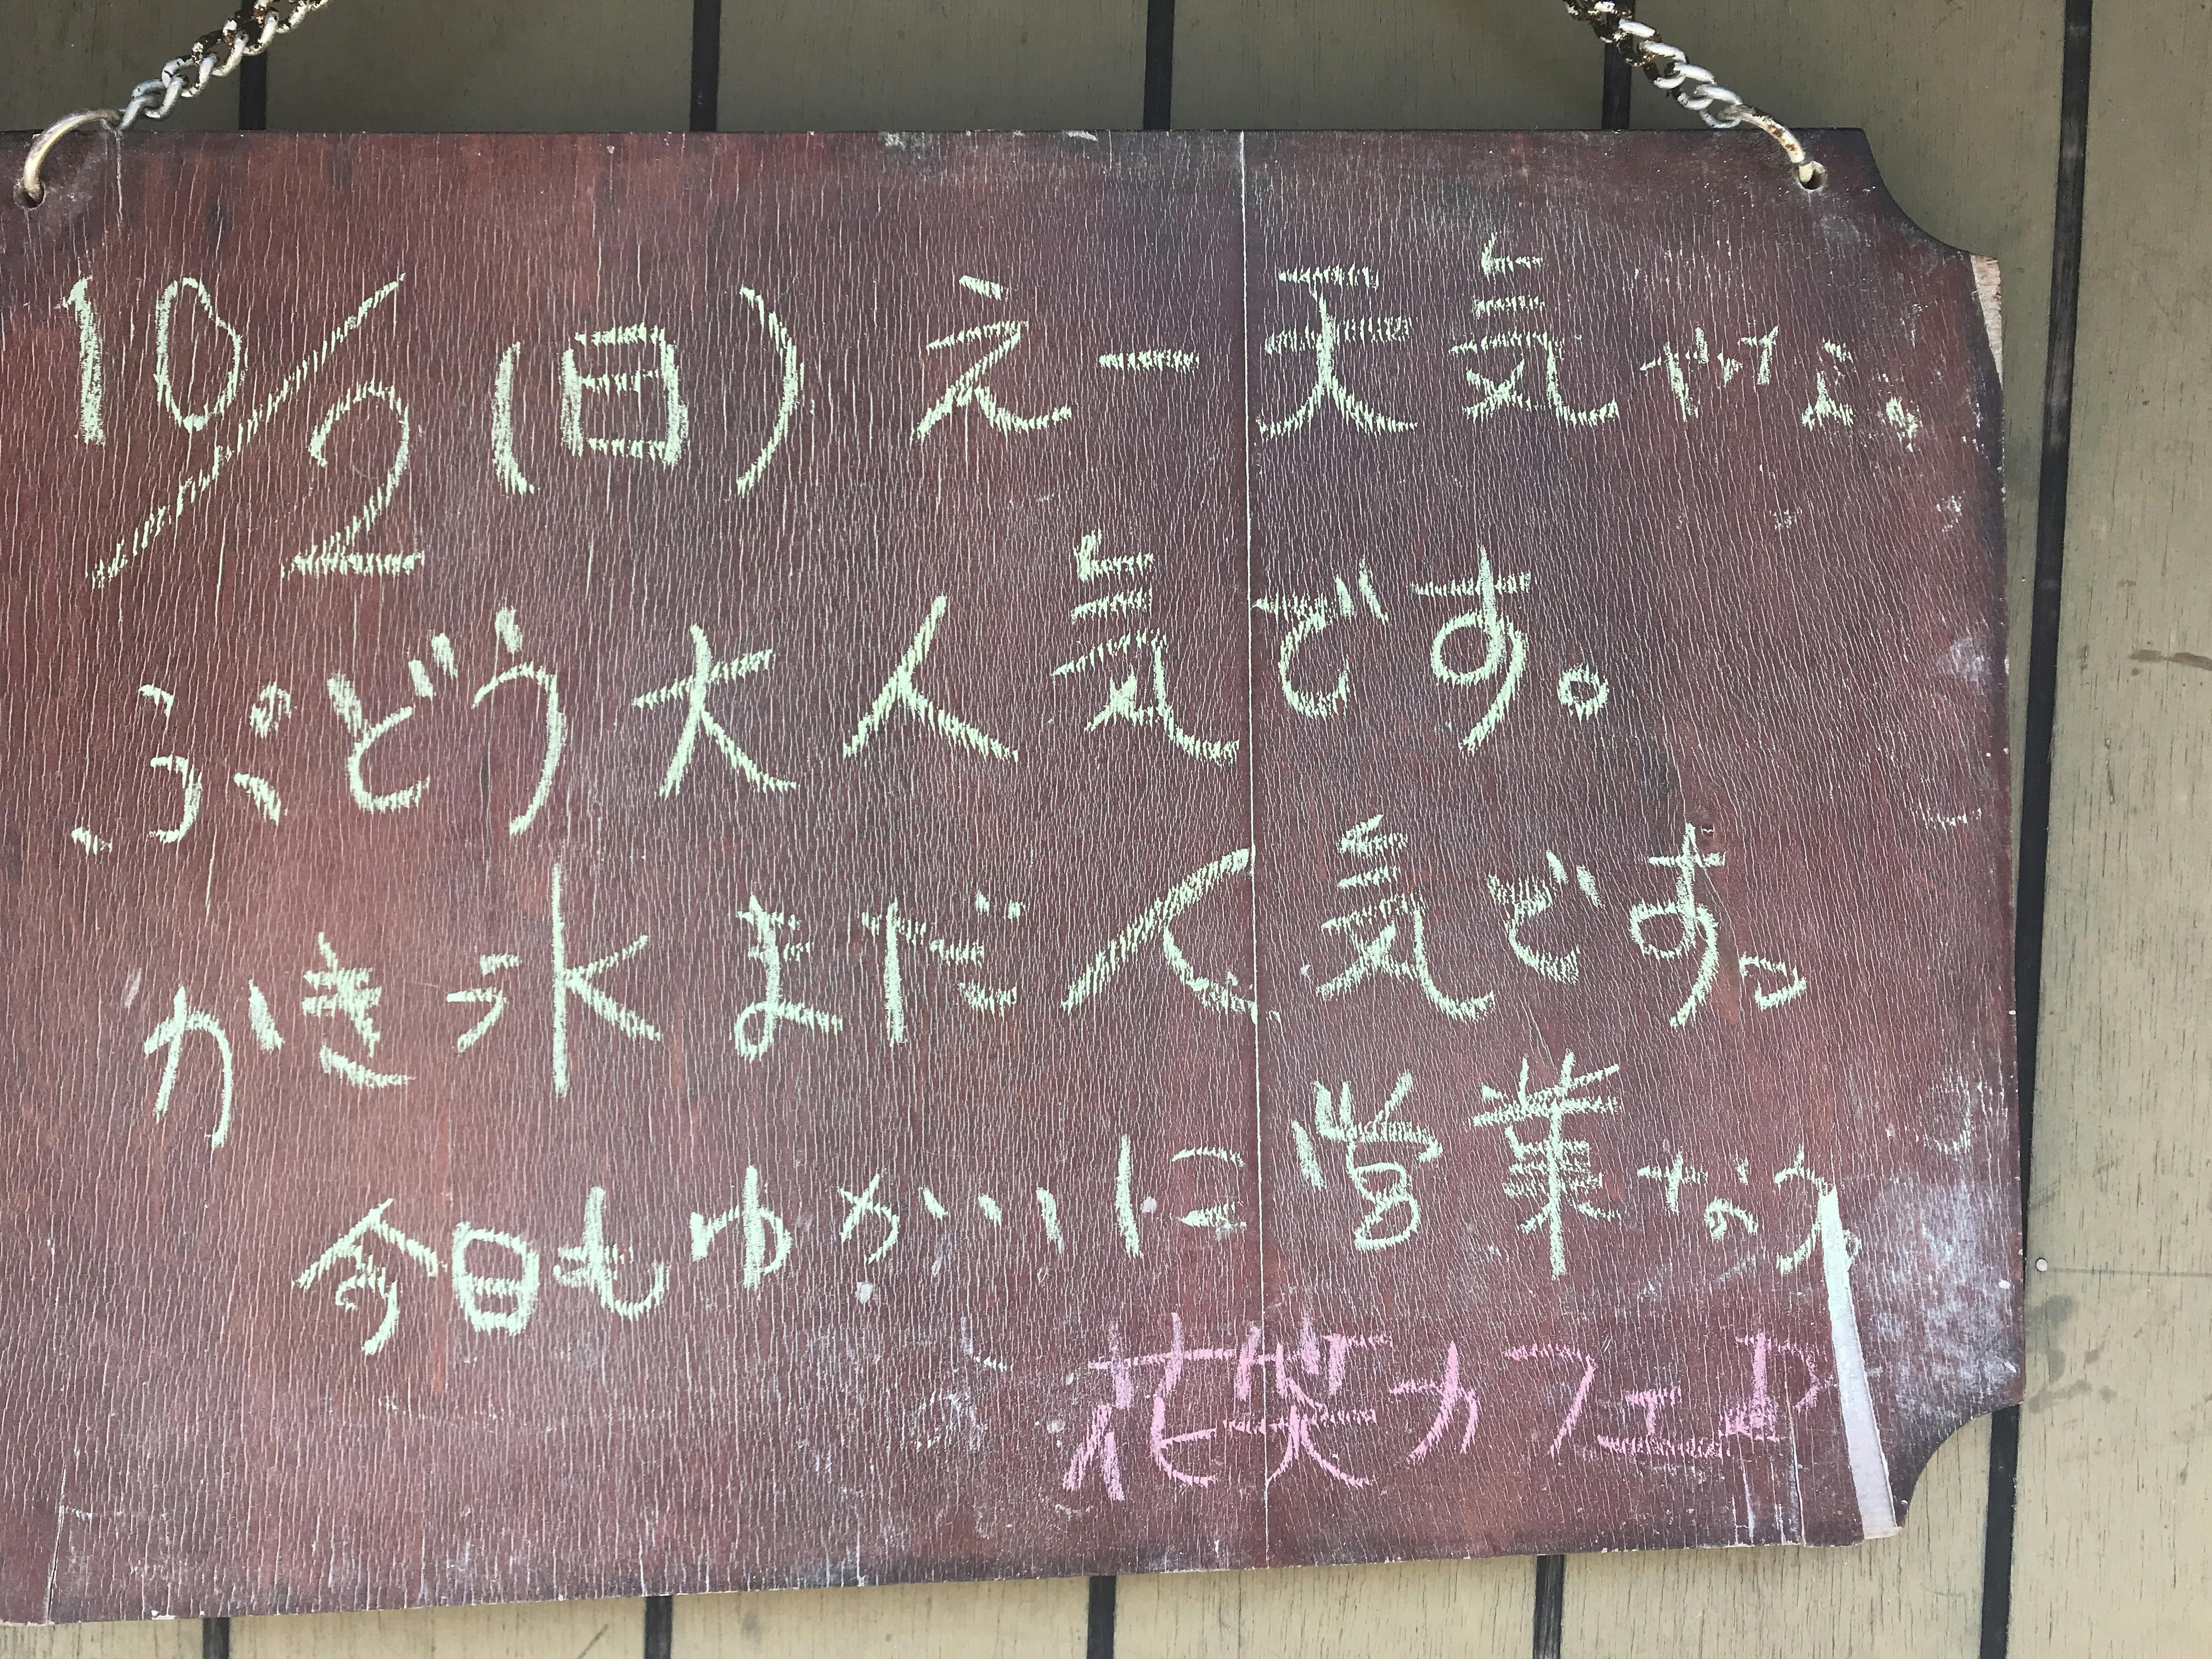 10/2(日)えー天気やな。
ぶどう大人気です。
かき氷まだ人気です。
今日もゆかいに営業なう。
花笑カフェ